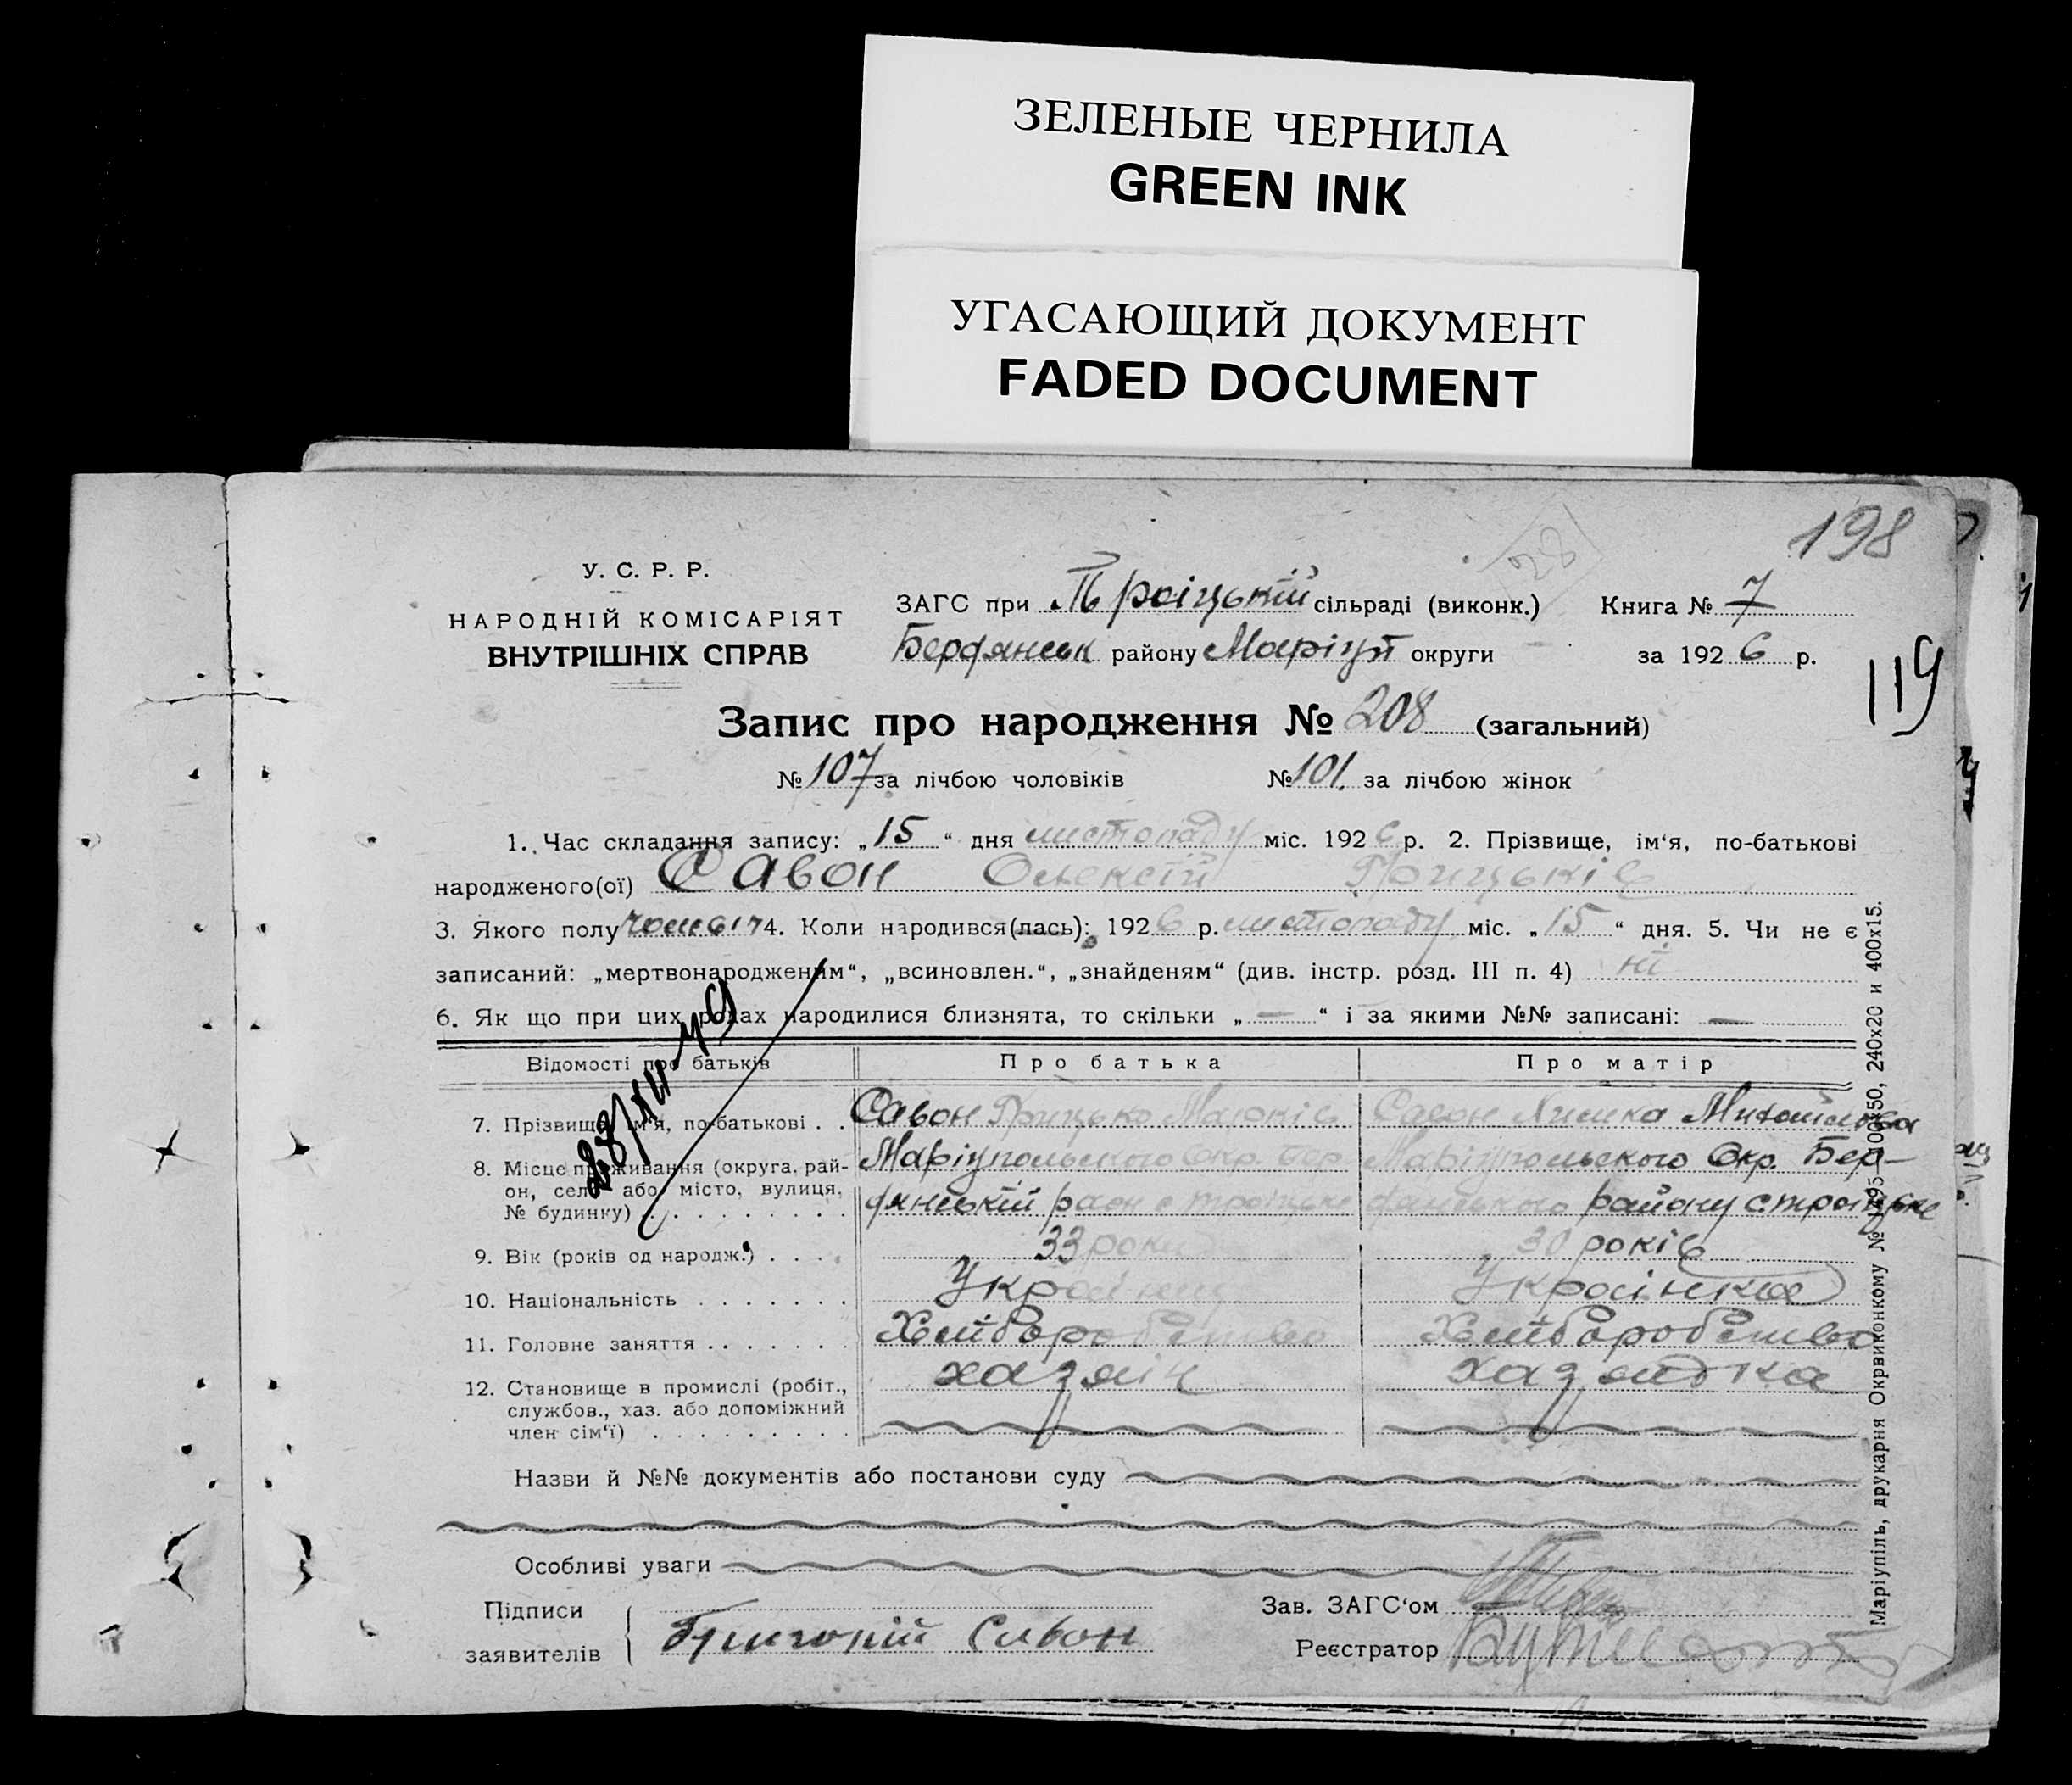 ЗЕЛЕНЫЕ ЧЕРНИЛА
GREEN INK
УГАСАЮЩИЙ ДОКУМЕНТ
FADED DOCUMENT
198
28
У. С. Р. Р.
НАРОДНІЙ КОМІСАРІЯТ
ВНУТРІШНІХ СПРАВ
ЗАГС при Троіцькій сільраді (виконк.) Книга № 7
Бердянськ району Маріуп округи за 1926 р.
119
Запис про народження № 208 (загальний)
№ 107 за лічбою чоловіків № 101. за лічбою жінок
1. Час складання запису: „15“ дня листопаду міс. 1926 р. 2. Прізвище, ім‘я, по-батькові
народженого(ої) Савон Олексій Грицьків
3. Якого полу 4. Коли народився(лась): 1926 р. листопаду міс. „15“ дня. 5. Чи не є
записаний: „мертвонародженям“, „всиновлен.“, „знайденям“ (див. інстр. розд. III п. 4) ні
6. Як що при цих родах народилися близнята, то скільки „—“ і за якими №№ записані: —
Відомості про батьків Про батька Про матір
7. Прізвище, ім‘я, по-батькові . . Савон Грицько Савон
8. Місце проживання (округа, рай- Маріупольського Окр. Бер Маріупольского Окр. Бер-
он, село або місто, вулиця, дянській раон с троіцьке дянського району с троіцьке
№ будинку) . . . . . . . . .
9. Вік (років од народж.) . . . . 33 рок 30 років
10. Національність . . . . . . . Українец Українка
11. Головне заняття . . . . . . . Хліборобство Хліборобство
12. Становище в промислі (робіт., хазяін хазяйка
службов., хаз. або допоміжний
член сім‘ї) . . . . . . . . .
Назви й №№ документів або постанови суду
Особливі уваги
Підписи Зав. ЗАГС‘ом
заявителів Григорій Савон Реєстратор
Маріупіль, друкарня Окрвиконкому № 240х20 и 400х15.